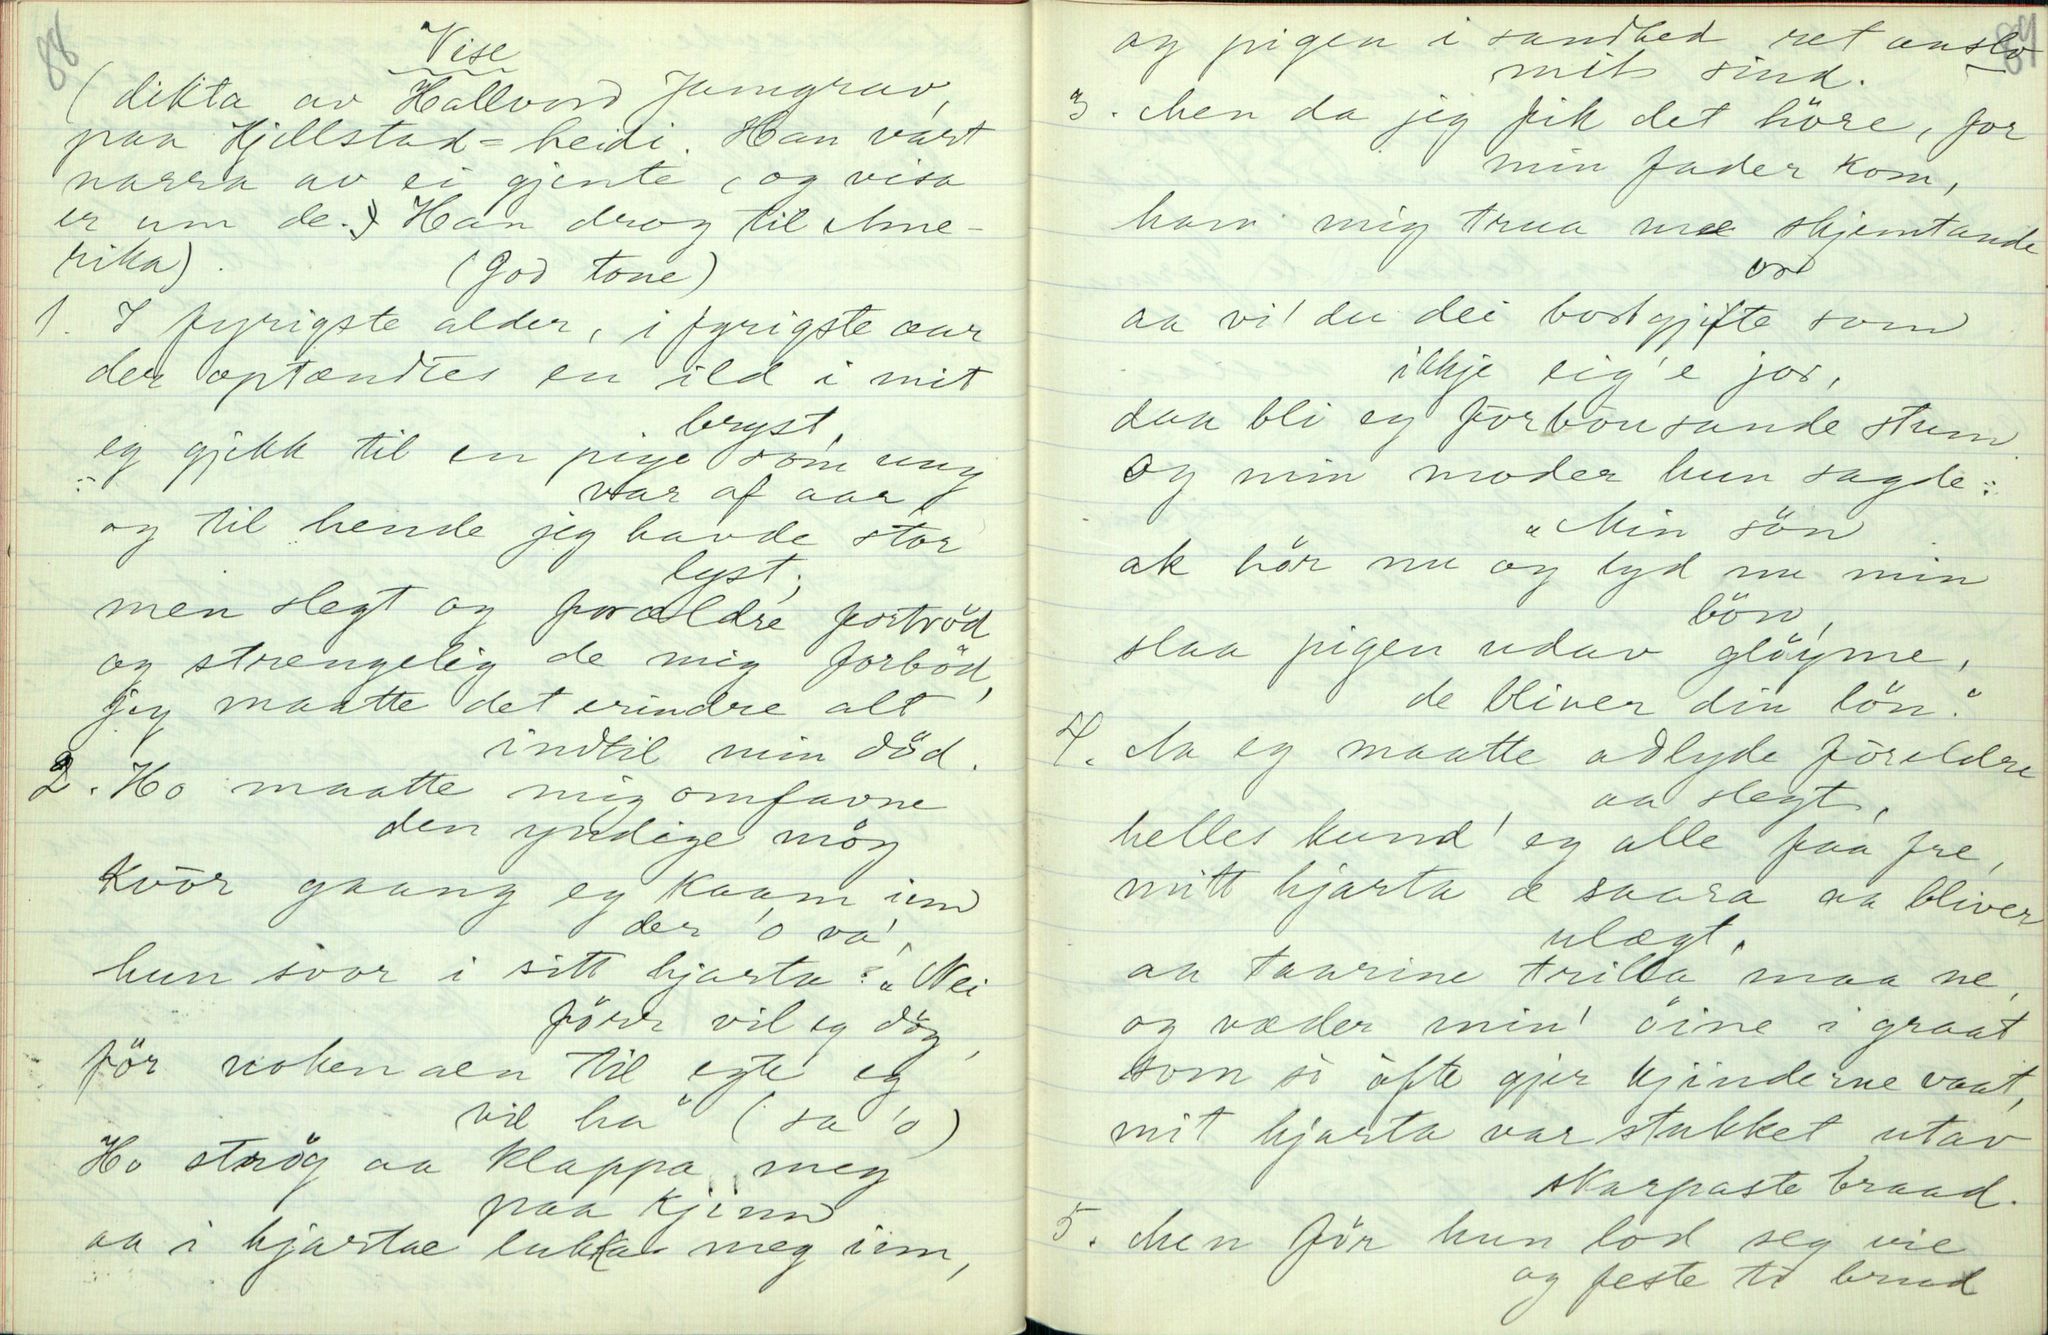 88
Vise
(dikta av Hallvord Jumgrav,
paa Kjellstad-heidi. Han vart
narra av ei gjente, og visa
er um de.) Han drog til Ame-
rika).
(God tone)
1. I fyrigste alder, i fyrigste aar
der optændtes en ild i mit
bryst,
eg gjekk til en pige som ung
var af aar
og til hende jeg havde stor
lyst,
men slegt og forældre fortröd
og strengelig de mig forböd,
jeg maatte det erindre alt
indtil min död.
2. Ho maatte mig omfavne
den yndige möy
kvör gaang eg kaam inn
der 'o va',
hun svor i sitt hjarta: "Nei
förr vil eg döy,
för noken aen til egte eg
vil ha" (sa 'o)
Ho ströy aa klappa meg
paa kjinn
aa i hjartae lukka meg inn,
89
og pigen i sandhed ret anslo
mit sind.
3. Men da jeg fik det höre, for
min fader kom,
han mig trua mæ skjemtande
or
aa vi' du dei bortgjifte som
ikkje eig'e jor,
daa bli eg forbousande stum
Og min moder hun sagde:
"Min sön
ak hör nu og lyd nu min
bön,
slaa pigen udav glöyme,
de bliver din lön."
4. Aa eg maatte adlyde föreldre
aa slegt,
helles kund' eg alle faa fre,
mitt hjarta æ saara aa bliver
ulægt,
aa taarine trilla maa ne,
og væder min' öine i graat
som so ofte gjer kjinderne vaat,
mit hjarta var stukket utav
skarpaste braad.
5. Men för hun lod seg vie
og feste ti brud